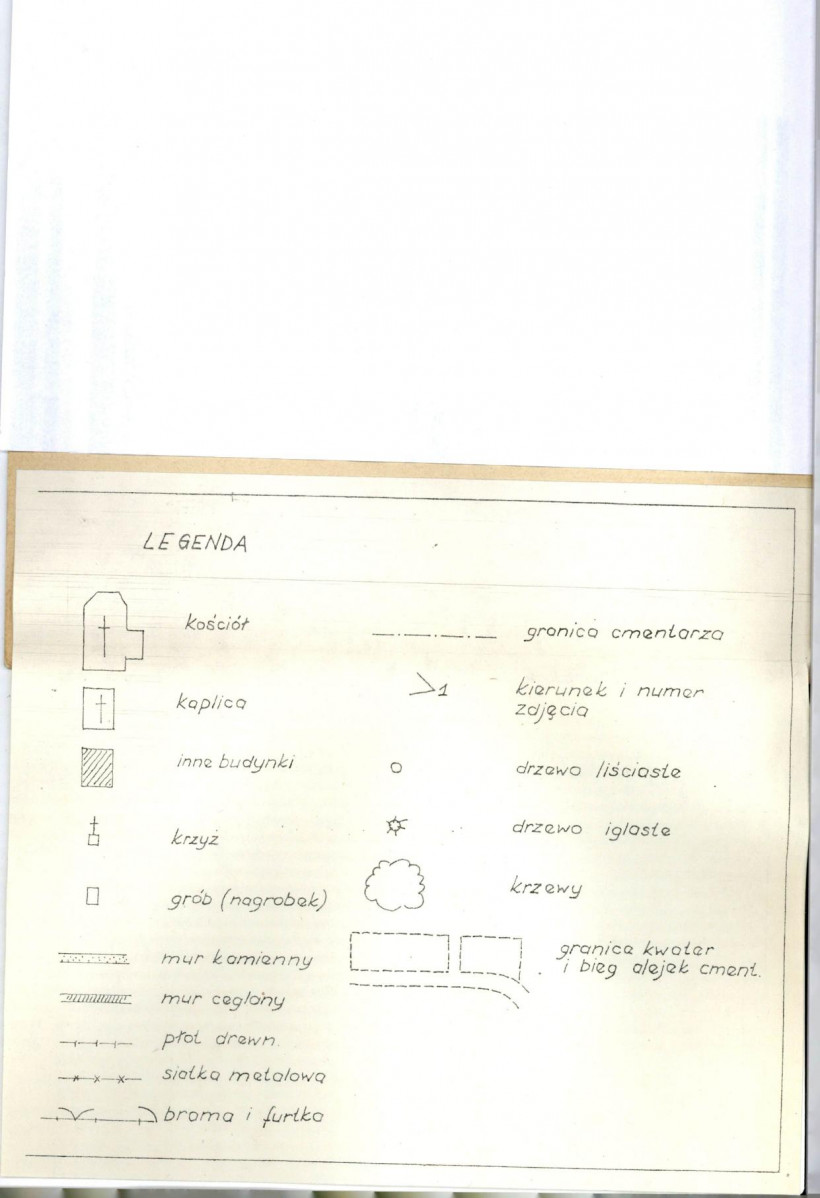 LEGENDA
kościół
kaplica
inne budynki
krzyż
grób (nagrobek)
mur kamienny
mur ceglany
płot drewn.
siatka metalowa
brama i furtka
granica cmentarza
1
kierunek i numer
zdjęcia
drzewo liściaste
drzewo iglaste
krzewy
granica kwater
i bieg alejek cment.